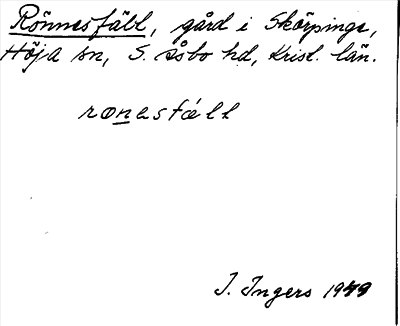 Rönnesfäll, gård i Skörpinge,
Höja sn, S. Åsbo hd, Krist. län.
ronesfäll
I. Ingers 1949